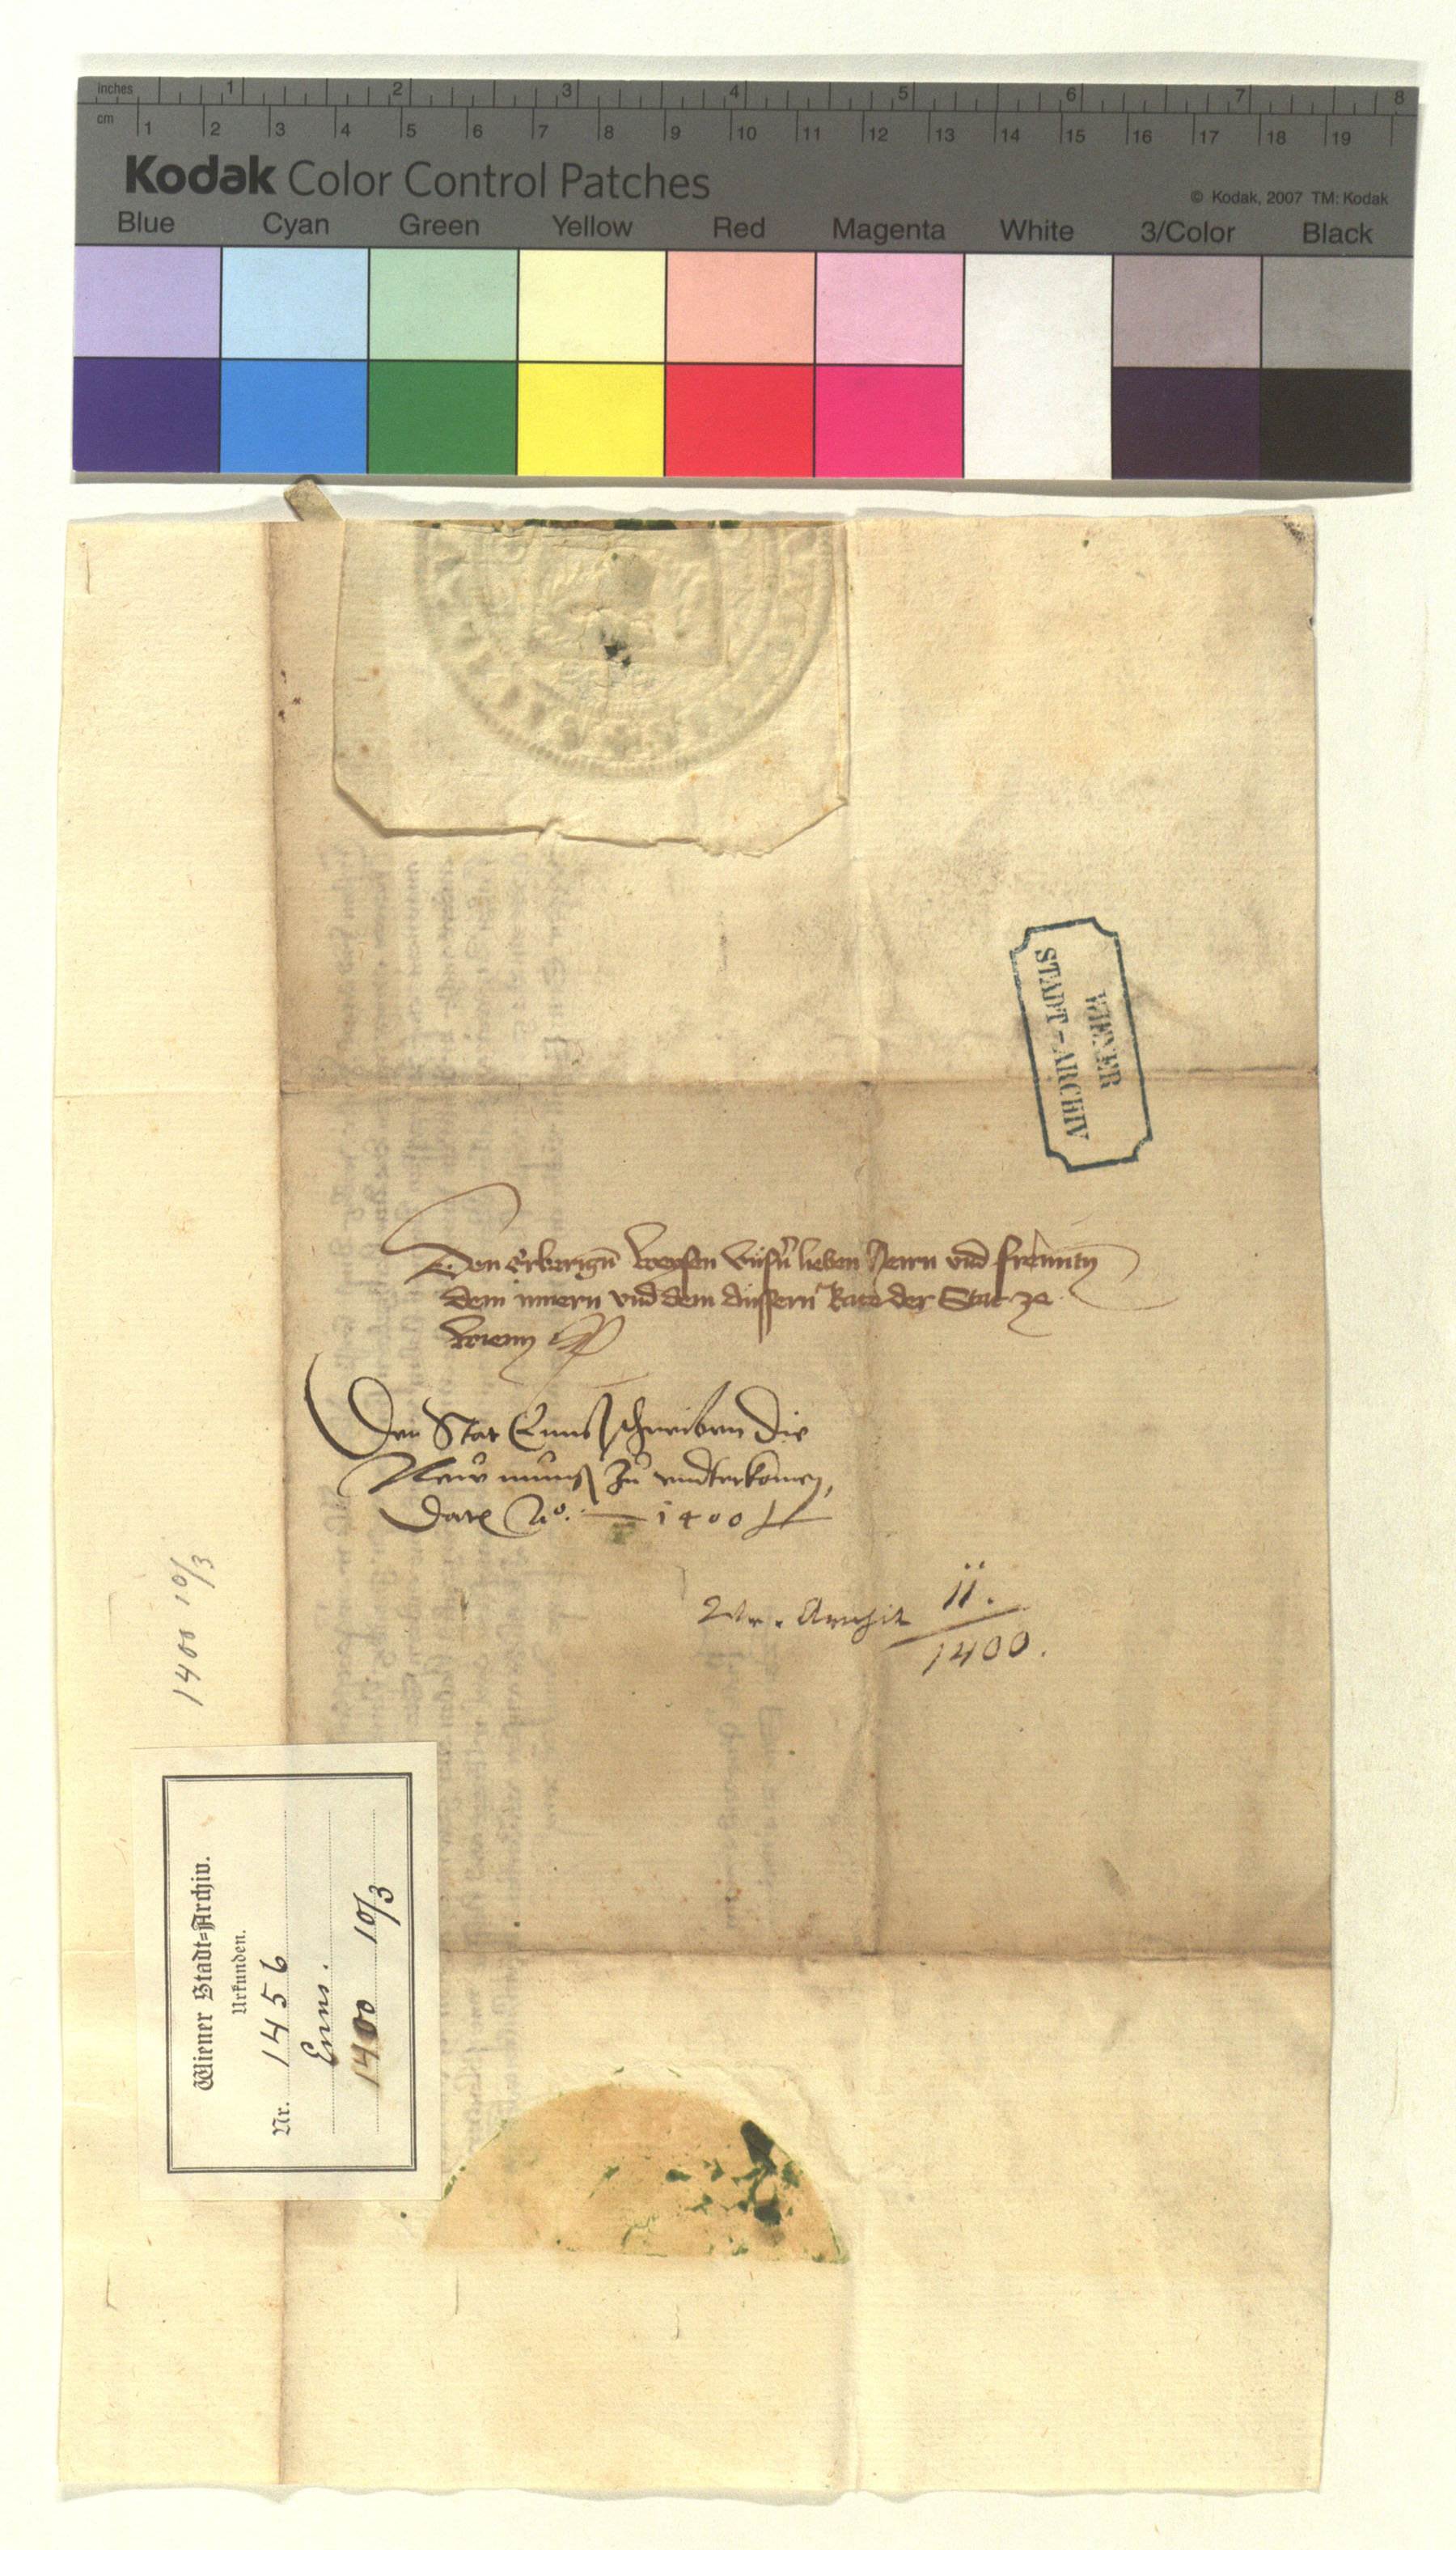 inches 1 2 3 4 5 6 7 8
cm 1 2 3 4 5 6 7 8 9 10 11 12 13 14 15 16 17 18 19
Kodak Color Control Patches
© Kodak, 2007 TM: Kodak
Blue Cyan Green Yellow Red Magenta White 3/Color Black
WIENER
STADT-ARCHIV
Den erbergn weysen unsern lieben Herrn vnd frewntn
dem innern vnd dem äussern Rate der Stat ze
Wienn
Der Stat Enns schreiben die
New münß zu vndterkomen,
Datx Aº. 1400
Wr. Archiv 11.
1400.
1400 10/3
Wiener Stadt-Archiv.
Urkunden.
Nr. 1456
Enns.
1400 10/3